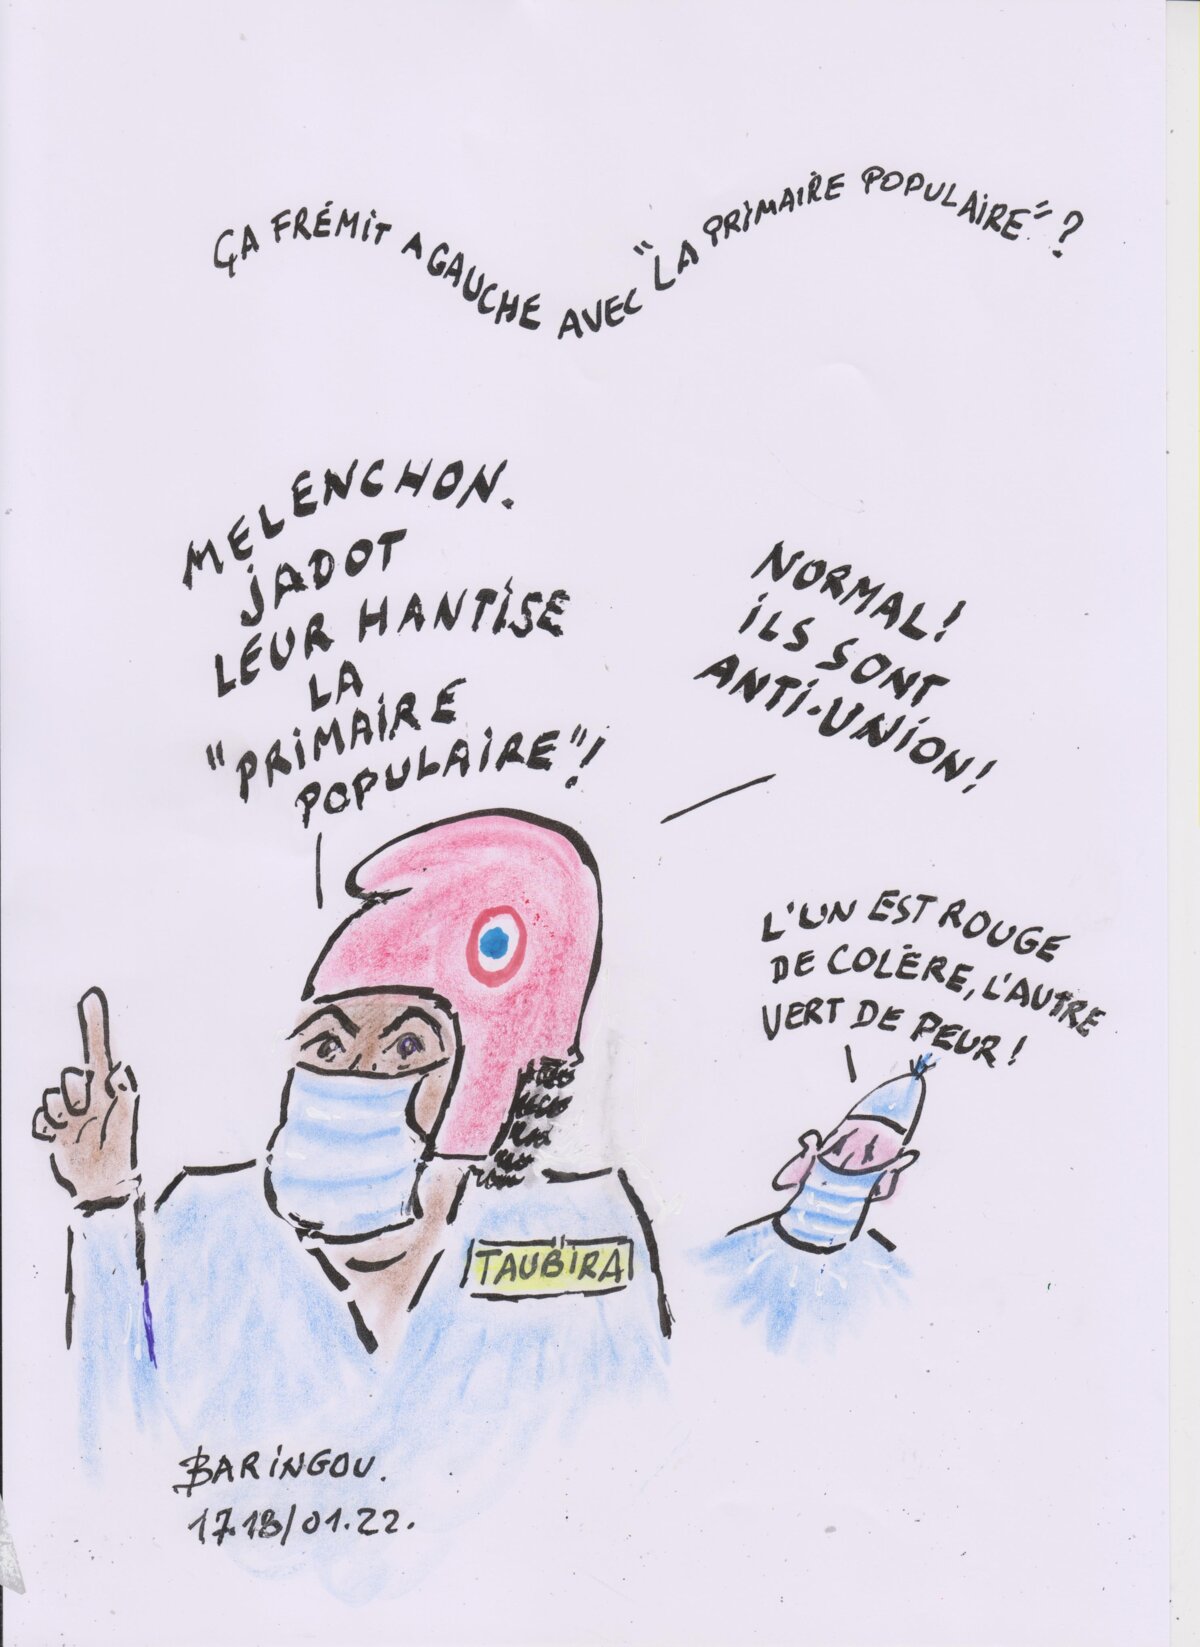 ÇA FRÉMIT A GAUCHE AVEC "LA PRIMAIRE POPULAIRE" ?
MELENCHON.
JADOT
LEUR HANTISE
LA
"PRIMAIRE
POPULAIRE"!
NORMAL!
ILS SONT
ANTI-UNION!
L'UN EST ROUGE
DE COLÈRE, L'AUTRE
VERT DE PEUR!
TAUBIRA
BARINGOU.
17.18/01.22.